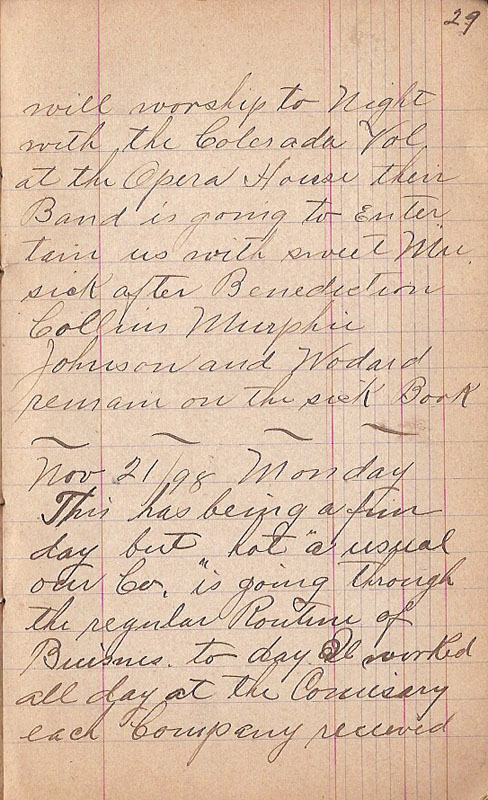 29
will worship to Night
with the Colorada Vol
at the Opera House their
Band is going to Enter
tain us with sweet Mu
sick after Benediction
Collins Murphie
Johnson and Wodard
remain on the sick Book
Nov 21/98 Monday
This has being a fine
day but hot "a usual
our Co, "is going through
the regular Routine of
Buisnes. to day I worked
all day at the Comisary
each Company recieved